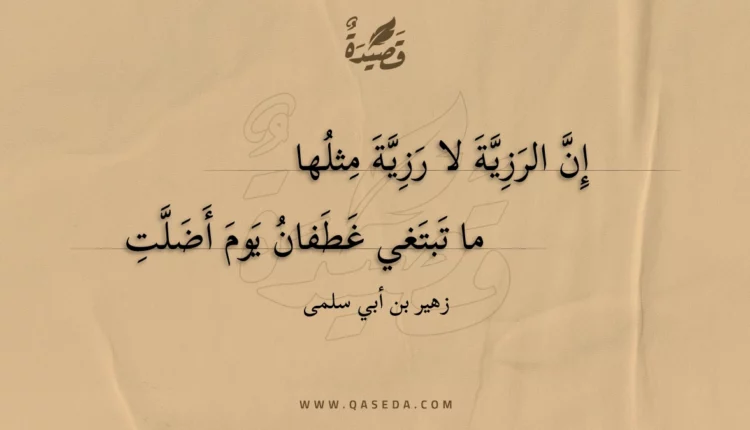 قَصِيْدَةٌ
إِنَّ الرَزِيَّةَ لا رَزِيَّةَ مِثلُها
ما تَبتَغي غَطَفانُ يَومَ أَضَلَّتِ
زهير بن أبي سلمى
WWW.QASEDA.COM